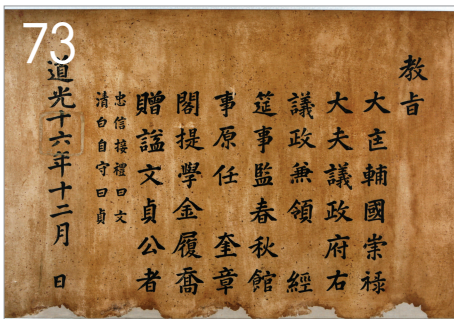 73
教旨
大匡輔國崇祿
大夫議政府右
議政兼領 經
筵事監春秋館
事原任 奎章
閣提學金履喬
贈諡文貞公者
忠信接禮曰文
清白自守曰貞
道光十六年十二月 日